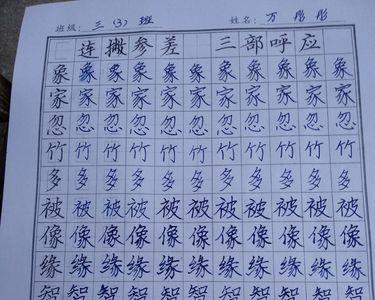 班级: 三 (3) 班 姓名: 万 彤彤
连撇参差 三部呼应
象象象象象象象象象象
家家家家家家家家家家
忽忽忽忽忽忽忽忽忽忽
竹竹竹竹竹竹竹竹竹竹
多多多多多多多多多多
被被被被被被被被被被
像像像像像像像像像像
缘缘缘缘缘缘缘缘缘缘
智智智智智智智智智智